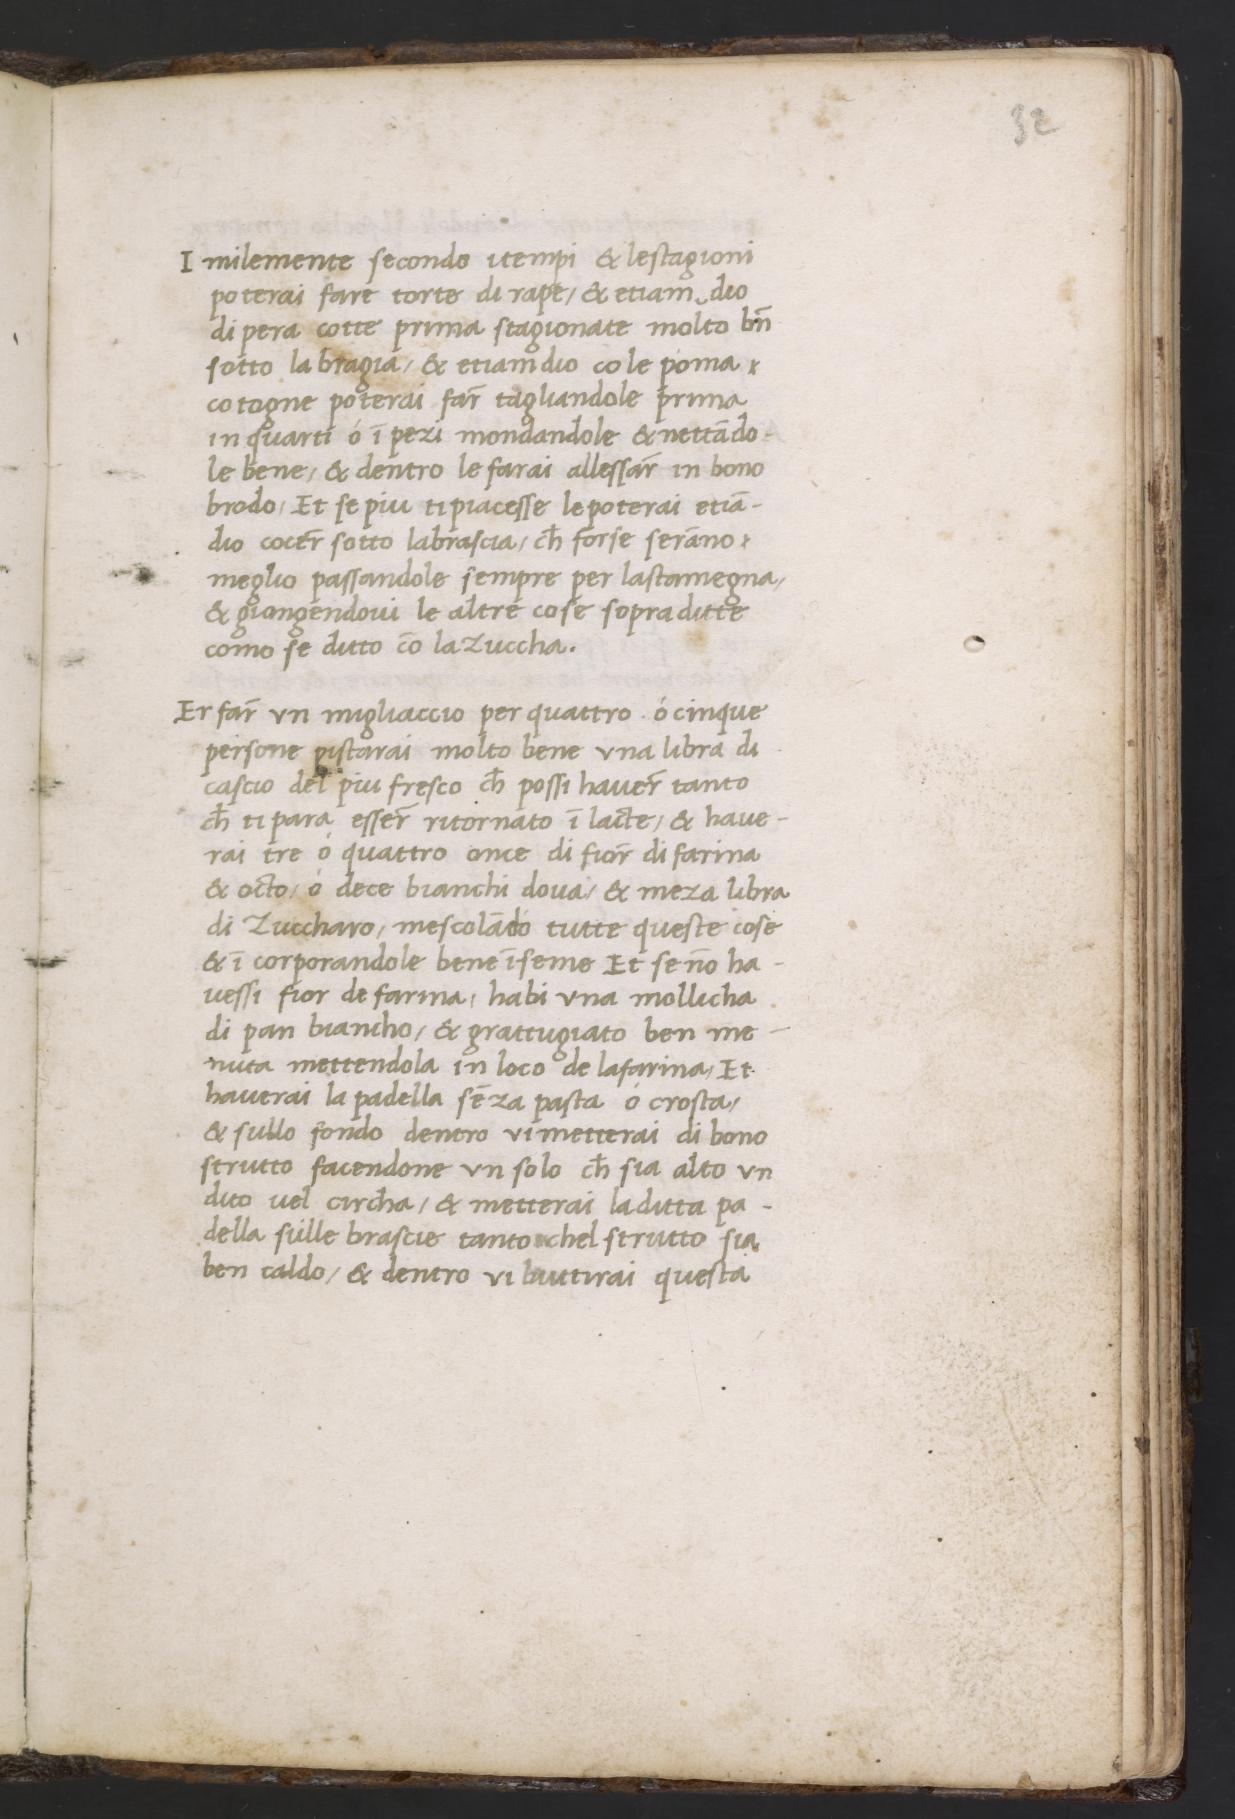 32
I milemente secondo itempi & lestagioni
poterai fare torte di rape/ & etiam dio
di pera cotte prima stagionate molto bn̄
sotto la bragia/ & etiamdio co le poma
cotogne poterai far̄ tagliandole prima
in quarti ó ī pezi mondandole & nettādo-
le bene/ & dentro le farai allessar̄ in bono
brodo/ Et se piu ti piacesse lepoterai etiā-
dio cocer̄ sotto labrascia/ ch̄ forse serāno
meglio passandole sempre per lastamegna/
& giongendoui le altre cose sopraditte
como se ditto cō la zuccha.
Er far̄ vn migliaccio per quattro ó cinque
persone pistarai molto bene vna libra di
cascio del piu fresco ch̄ possi hauer̄ tanto
ch̄ ti para esser̄ ritornato ī lacte/ & haue-
rai tre ó quattro once di fior̄ di farina
& octo/ ó dece bianchi doua/ & meza libra
di Zuccharo/ mescolādo tutte queste cose
& ī corporandole bene īseme Et se nō ha-
uessi fior de farina/ habi vna mollicha
di pan biancho/ & grattugiato ben me-
nuta mettendola in loco de lafarina/ Et
hauerai la padella sēza pasta ó crosta/
& sullo fondo dentro vi metterai di bono
strutto facendone vn solo ch̄ sia alto vn
dito uel circha/ & metterai laditta pa-
della sulle brascie tanto chel strutto sia
ben caldo/ & dentro vi buttirai questa